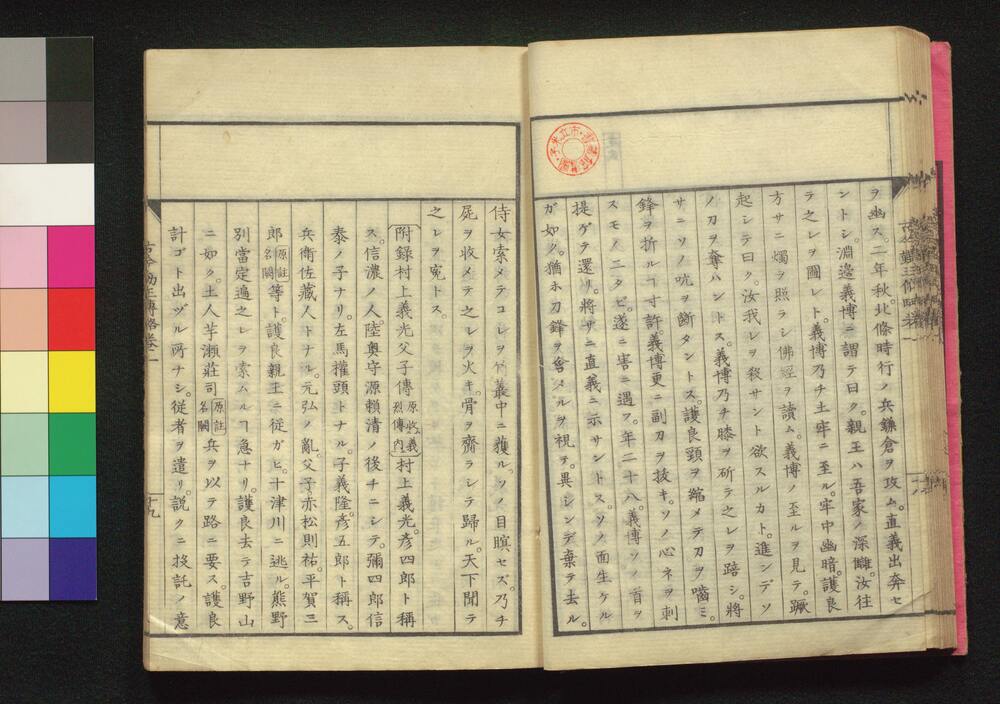 ヲ幽ス。二年秋。北條時行ノ兵鎌倉ヲ攻ム。直義出奔セ
ントシ。淵邊義博ニ謂テ曰ク。親王ハ吾家ノ深讎。汝往
テ之レヲ圖レト。義博乃チ土牢ニ至ル。牢中幽暗。護良
方サニ燭ヲ照ラシ佛經ヲ讀ム。義博ノ至ルヲ見テ。蹶
起シテ曰ク。汝我レヲ殺サント欲スルカト。進ンデソ
ノ刀ヲ奪ハントス。義博乃チ膝ヲ斫テ之レヲ踣シ。將
サニソノ吭ヲ斷タントス。護良頸ヲ縮メテ刀ヲ嚙ミ。
鋒ヲ折ルヿ寸許。義博更ニ副刀ヲ抜キ。ソノ心ネヲ刺
スモノ二タビ。遂ニ害ニ遇フ。年二十八。義博ソノ首ヲ
提ゲテ還リ。將サニ直義ニ示サントス。ソノ面生ケル
ガ如ク。猶ホ刀鋒ヲ含メルヲ視テ。異シンデ棄テ去ル。
侍女索メテコレヲ竹叢中ニ獲ル。ソノ目瞑セズ。乃チ
屍ヲ收メテ之レヲ火キ。骨ヲ齎ラシテ歸ル。天下聞テ
之レヲ寃トス。
附録村上義光父子傳 原收義烈傳内 村上義光。彦四郎ト稱
ス。信濃ノ人。陸奥守源頼清ノ後チニシテ。彌四郎信
泰ノ子ナリ。左馬權頭トナル。子義隆。彦五郎ト稱ス。
兵衛佐藏人トナル。元弘ノ亂。父子。赤松則祐。平賀三
郎 原註名闕 等ト。護良親王ニ從ガヒ。十津川ニ逃ル。熊野
別當定遍之レヲ索ムルヿ急ナリ。護良去テ吉野山
ニ如ク。土人芋瀬莊司 原註名闕 兵ヲ以テ路ニ要ス。護良
計ゴト出ヅル所ナシ。從者ヲ遣リ。説クニ投託ノ意
古今勤王傳略卷二
十九